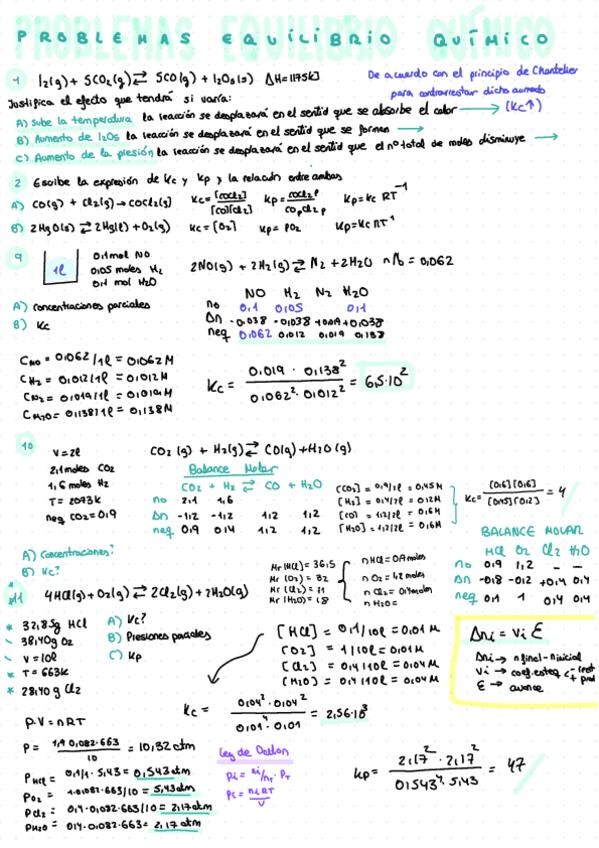 PROBLEMAS EQUILIBRIO QUÍMICO
1 I₂(g) + 5CO₂(g) ⇄ 5CO(g) + I₂O₅(s) ΔH = 1175 kJ
De acuerdo con el principio de Chantelier
para contrarrestar dicho aumento
Justifica el efecto que tendrá si varía:
A) Sube la temperatura la reacción se desplazará en el sentid que se absorbe el calor → (Kc↑)
B) Aumento de I₂O₅ la reacción se desplazará en el sentid que se forman →
C) Aumento de la presión la reacción se desplazará en el sentid que el nº total de moles disminuye →
2 Escribe la expresión de Kc y Kp y la relación entre ambas
A) CO(g) + Cl₂(g) → COCl₂(g) Kc = [COCl₂] / [CO][Cl₂] Kp = PCOCl₂ / PCO PCl₂ Kp = Kc RT⁻¹
B) 2HgO(s) ⇄ 2Hg(l) + O₂(g) Kc = [O₂] Kp = PO₂ Kp = Kc RT¹
9 1l
0,1 mol NO
0,05 moles H₂
0,1 mol H₂O
2NO(g) + 2H₂(g) ⇄ N₂ + 2H₂O nNo = 0,062
NO H₂ N₂ H₂O
A) concentraciones parciales
B) Kc
no 0,1 0,05 0,1
Δn -0,038 -0,038 +0,019 +0,038
neq 0,062 0,012 0,019 0,138
CNO = 0,062/1l = 0,062M
CH₂ = 0,012/1l = 0,012M
CN₂ = 0,019/1l = 0,019M
CH₂O = 0,138/1l = 0,138M
Kc = 0,019 · 0,138² / 0,062² · 0,012² = 6,5·10²
10 V = 2l
2,1 moles CO₂
1,6 moles H₂
T = 2093k
neq CO₂ = 0,9
CO₂(g) + H₂(g) ⇄ CO(g) + H₂O(g)
Balance Molar
CO₂ + H₂ ⇄ CO + H₂O
no 2,1 1,6
Δn -1,2 -1,2 1,2 1,2
neq 0,9 0,4 1,2 1,2
[CO₂] = 0,9/2l = 0,45M
[H₂] = 0,4/2l = 0,2M
[CO] = 1,2/2l = 0,6M
[H₂O] = 1,2/2l = 0,6M
Kc = [0,6][0,6] / [0,45][0,2] = 4
A) Concentraciones?
B) Kc?
BALANCE MOLAR
HCl O₂ Cl₂ H₂O
no 0,9 1,2 - -
Δn -0,8 -0,2 +0,4 0,4
neq 0,1 1 0,4 0,4
11 4HCl(g) + O₂(g) ⇄ 2Cl₂(g) + 2H₂O(g)
Mr (HCl) = 36,5
Mr (O₂) = 32
Mr (Cl₂) = 71
Mr (H₂O) = 18
n O₂ = 1,2 moles
n Cl₂ = 0,4 moles
n H₂O =
32,85g HCl
38,40g O₂
V = 10l
T = 663k
28,40 g Cl₂
A) Kc?
B) Presiones parciales
C) Kp
[HCl] = 0,1/10l = 0,01 M
[O₂] = 1/10l = 0,01 M
[Cl₂] = 0,4/10l = 0,04 M
[H₂O] = 0,4/10l = 0,04 M
Δni = Vi ξ
Δni → nfinal - ninicial
Vi → coef. esteq
ξ → avance
Kc = 0,04² · 0,04² / 0,01⁴ · 0,01 = 2,56·10⁴
P·V = nRT
P = 1,9 · 0,082 · 663 / 10 = 10,32 atm
PHCl = 0,1/1 · 5,43 = 0,543 atm
PO₂ = 1·0,082·663/10 = 5,43 atm
PCl₂ = 0,4·0,082·663/10 = 2,17 atm
PH₂O = 0,4·0,082·663 = 2,17 atm
Ley de Dalton
Pi = ni/nT · PT
Pi = niRT / V
Kp = 2,17² · 2,17² / 0,543⁴ · 5,43 = 47